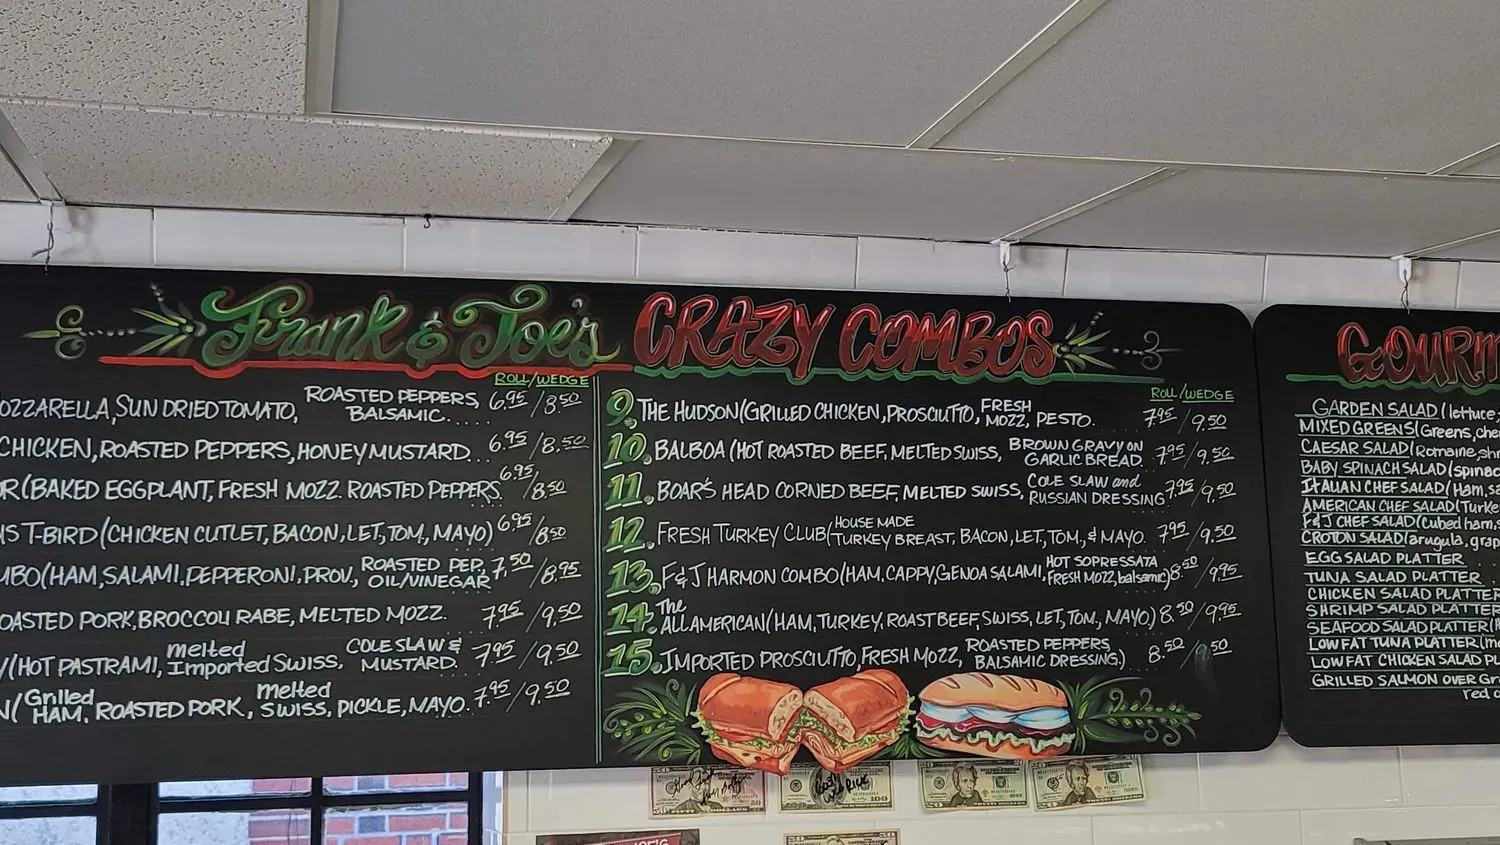 Frank & Joe's CRAZY COMBOS
ROLL/WEDGE
OZZARELLA, SUN DRIED TOMATO, ROASTED PEPPERS, BALSAMIC..... 6.95/8.50
CHICKEN, ROASTED PEPPERS, HONEY MUSTARD... 6.95/8.50
R (BAKED EGGPLANT, FRESH MOZZ. ROASTED PEPPERS 6.95/8.50
S T-BIRD (CHICKEN CUTLET, BACON, LET, TOM, MAYO) 6.95/8.50
MBO (HAM, SALAMI, PEPPERONI, PROV, ROASTED PEP, OIL/VINEGAR 7.50/8.95
OASTED PORK, BROCCOLI RABE, MELTED MOZZ. 7.95/9.50
Y (HOT PASTRAMI, melted Imported SWISS, COLE SLAW & MUSTARD. 7.95/9.50
N (Grilled HAM, ROASTED PORK, melted SWISS, PICKLE, MAYO. 7.95/9.50
ROLL/WEDGE
9. THE HUDSON (GRILLED CHICKEN, PROSCIUTTO, FRESH MOZZ, PESTO. 7.95/9.50
10. BALBOA (HOT ROASTED BEEF, MELTED SWISS, BROWN GRAVY ON GARLIC BREAD. 7.95/9.50
11. BOAR'S HEAD CORNED BEEF, MELTED SWISS, COLE SLAW and RUSSIAN DRESSING 7.95/9.50
12. FRESH TURKEY CLUB (HOUSE MADE TURKEY BREAST, BACON, LET, TOM, & MAYO. 7.95/9.50
13. F & J HARMON COMBO (HAM, CAPPY, GENOA SALAMI, HOT SOPRESSATA FRESH MOZZ, balsamic) 8.50/9.95
14. The ALL AMERICAN (HAM, TURKEY, ROAST BEEF, SWISS, LET, TOM, MAYO) 8.50/9.95
15. IMPORTED PROSCIUTTO, FRESH MOZZ, ROASTED PEPPERS, BALSAMIC DRESSING) 8.50/9.50
GOURM
GARDEN SALAD (lettuce,
MIXED GREENS (Greens, cher
CAESAR SALAD (Romaine, shr
BABY SPINACH SALAD (spinac
ITALIAN CHEF SALAD (Ham, sa
AMERICAN CHEF SALAD (Turke
F & J CHEF SALAD (Cubed ham, s
CROTON SALAD (arugula, grap
EGG SALAD PLATTER
TUNA SALAD PLATTER
CHICKEN SALAD PLATTER
SHRIMP SALAD PLATTER
SEAFOOD SALAD PLATTER (
LOWFAT TUNA PLATTER (
LOW FAT CHICKEN SALAD PL
GRILLED SALMON OVER Gr
red o